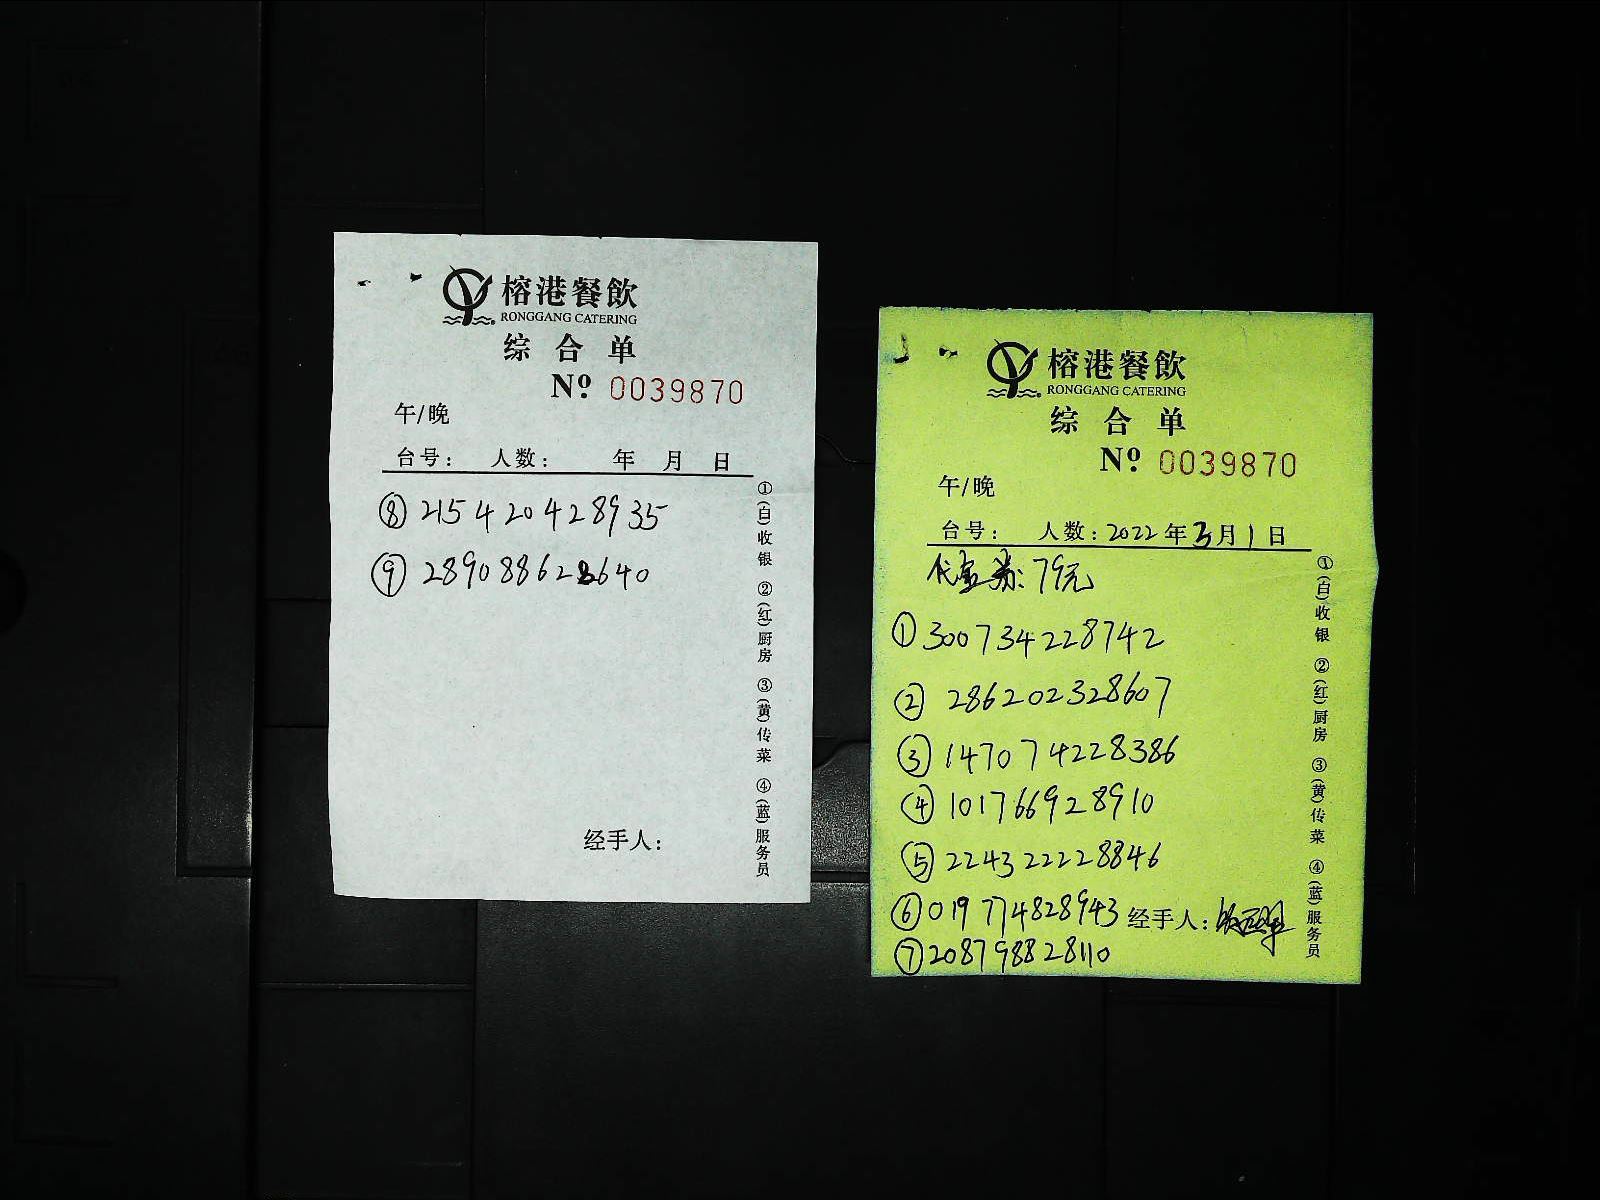 榕港餐飲
RONGGANG CATERING
综合单
Nº 0039870
午/晚
台号： 人数： 年 月 日
⑧ 215420428935
⑨ 289088628640
经手人：
①(白)收银 ②(红)厨房 ③(黄)传菜 ④(蓝)服务员
榕港餐飲
RONGGANG CATERING
综合单
Nº 0039870
午/晚
台号： 人数：2022年3月1日
代金券：79元
① 300734228742
② 286202328607
③ 147074228386
④ 101766928910
⑤ 224322228846
⑥ 019774828943 经手人：
⑦ 208798828110
①(白)收银 ②(红)厨房 ③(黄)传菜 ④(蓝)服务员